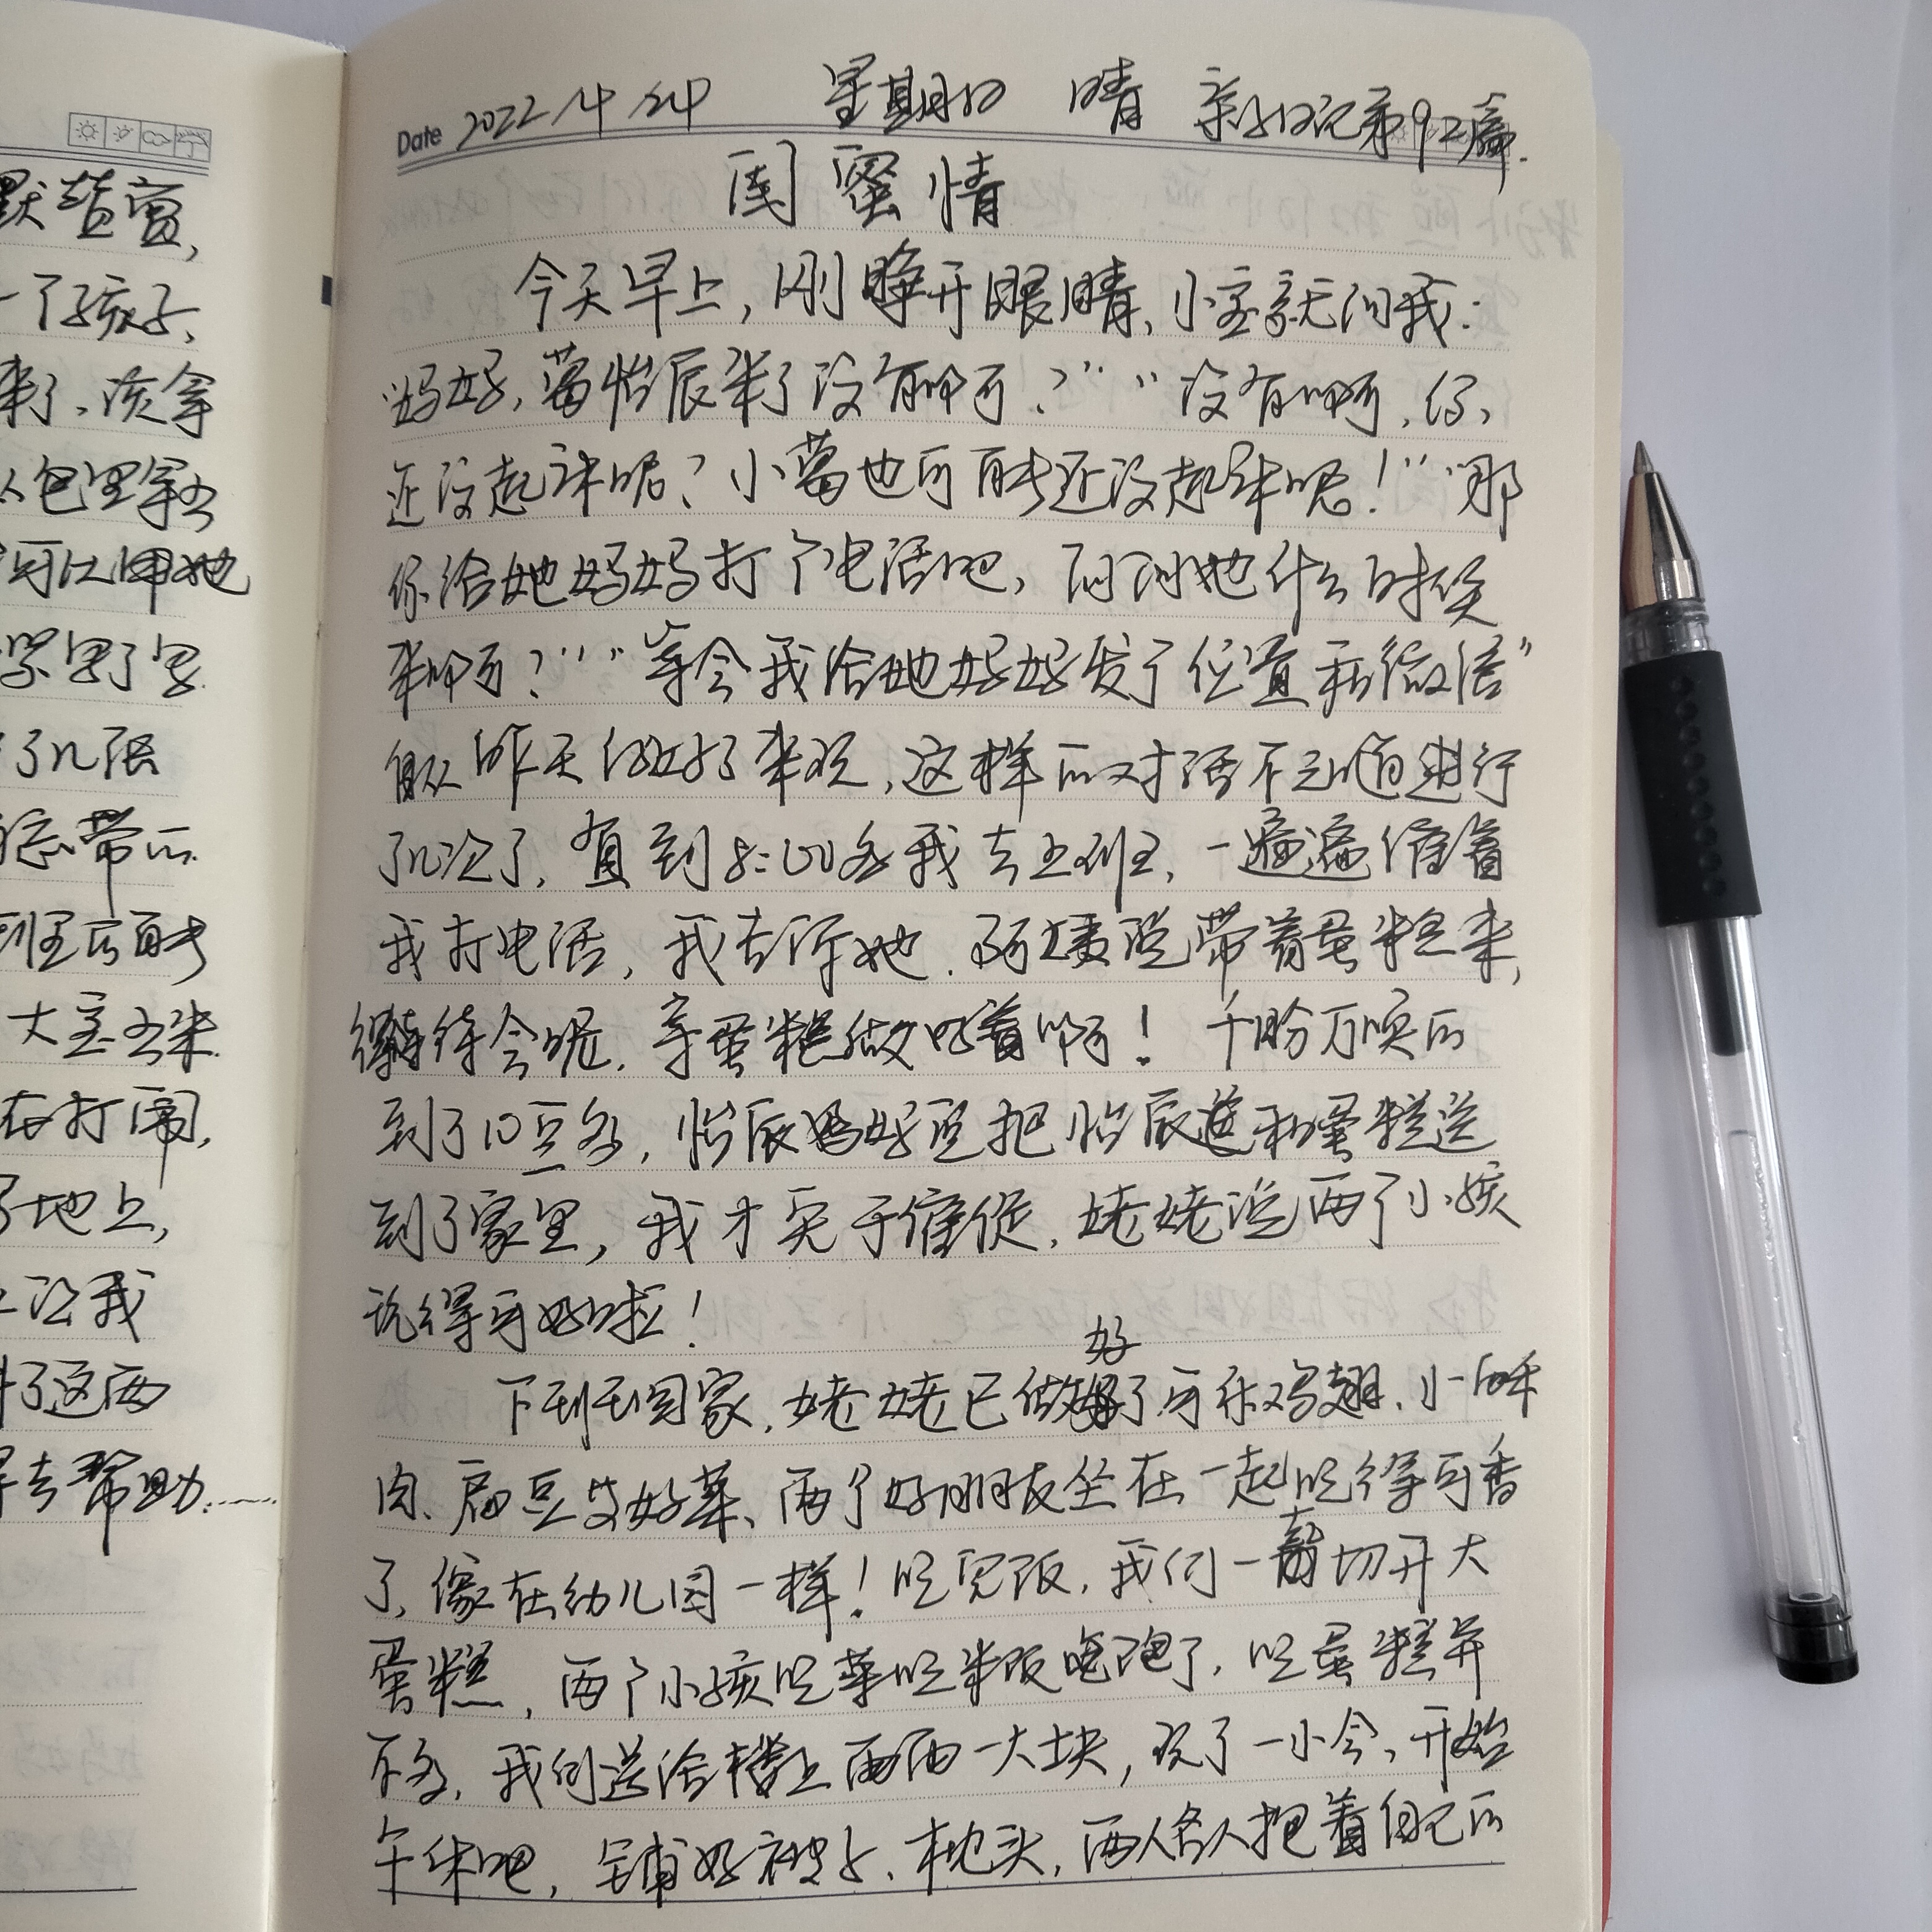 默营赏，
一个孩子，
来了，该拿
从包里拿出
可以用她
了几张
忘带的
大宝出来
在打闹，
了地上，
让我
了这两
得去帮助……
Date 2022/4/24 星期日 晴 亲子日记第92篇.
闺蜜情
今天早上，刚睁开眼睛，小宝就问我：
"妈妈，葛怡辰来了没有啊？""没有啊，你
还没起床呢？小葛也可能还没起床呢！""那
你给她妈妈打个电话吧，问问她什么时候
来啊？""等会我给她妈妈发个位置和微信"
自从昨天约好了来玩，这样的对话不知道进行
了几次了，直到8:00多我去上班，一遍遍催着
我打电话，我告诉她，阿姨说带着蛋糕来，
得等待会呢，等蛋糕做好着啊！千盼万唤的
到了10点多，怡辰妈妈说把怡辰和蛋糕送
到了家里，我才免于催促，姥姥说两个小孩
玩得可好啦！
下班回家，姥姥已做好了可乐鸡翅、小酥
肉、扁豆炒好菜、两个好朋友坐在一起吃得可香
了，像在幼儿园一样！吃完饭，我们一齐切开大
蛋糕，两个小孩吃菜吃米饭吃饱了，吃蛋糕并
不多，我们送给楼上西西一大块，玩了一小会，开始
午休吧，铺好被子、枕头，两人各人抱着自己的